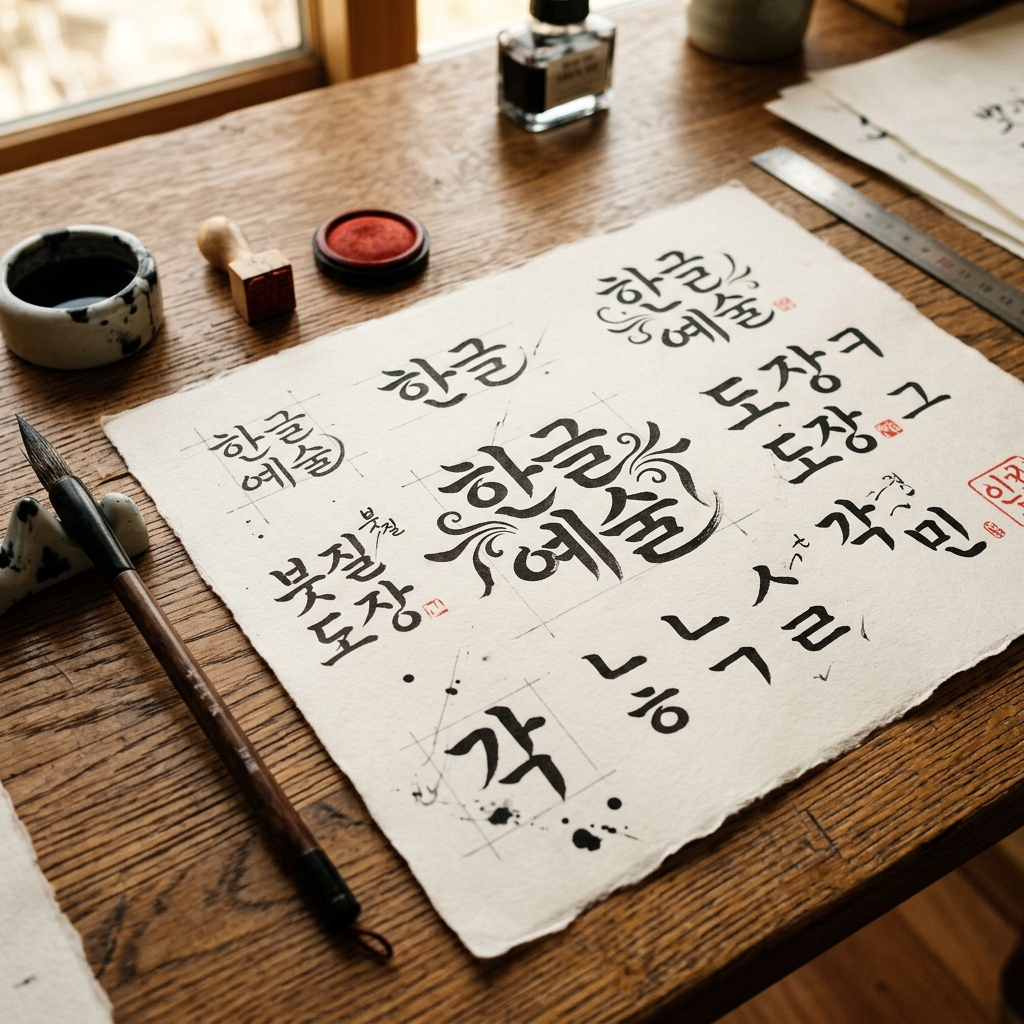 한글
예술
한글
한글
예술
도장ㅋ
도장
그
한글
예술
붓질
붓질
도장
각
민
ㅅ
ㄴ
ㄱ
ㄹ
ㄴ
능
각